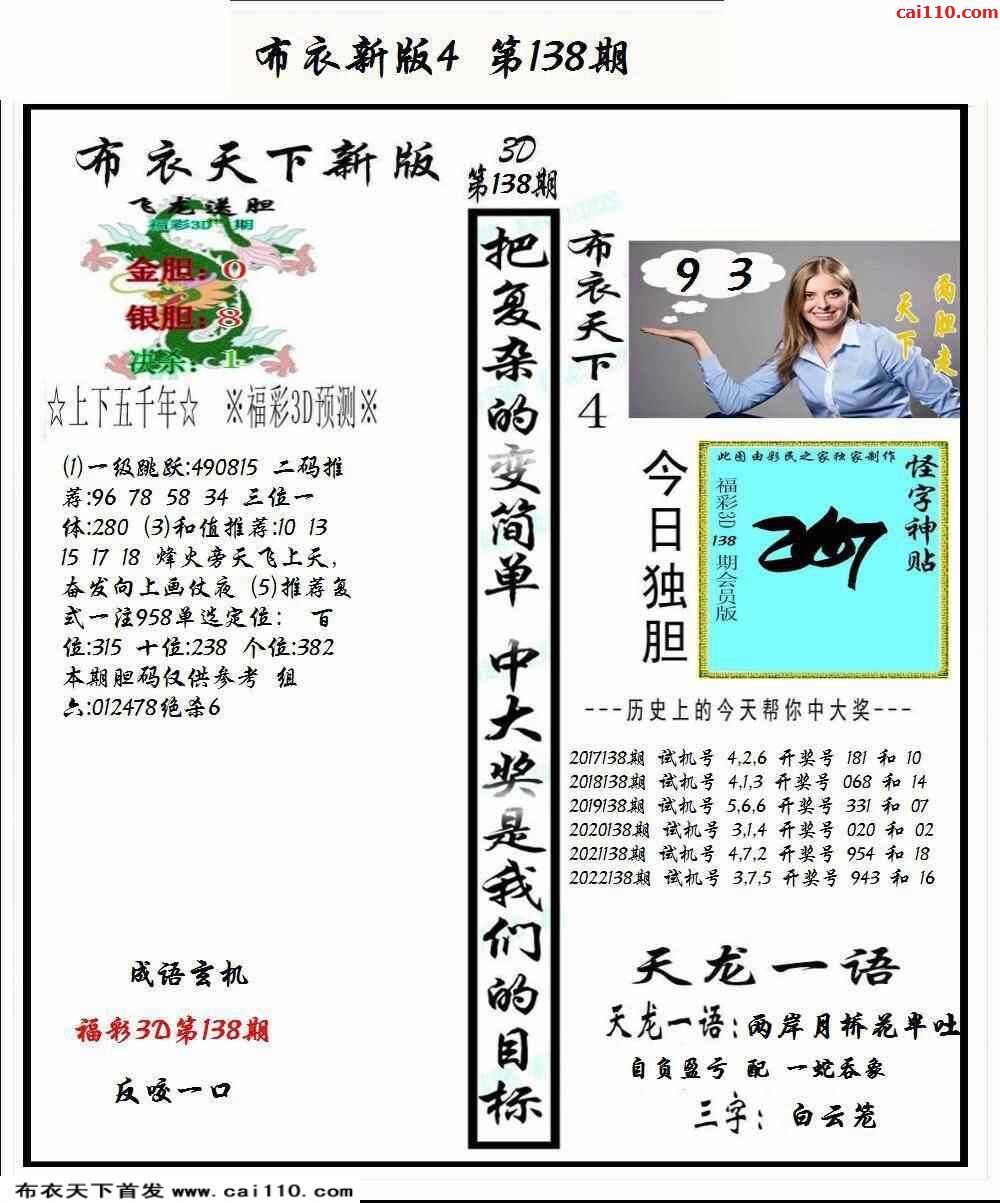 cai110.com
布衣新版4 第138期
布衣天下新版
飞龙送胆
福彩3D 期
金胆：0
银胆：8
决杀：1
☆上下五千年☆ ※福彩3D预测※
(1)一级跳跃:490815 二码推
荐:96 78 58 34 三位一
体:280 (3)和值推荐:10 13
15 17 18 烽火旁天飞上天，
奋发向上画仗夜 (5)推荐复
式一注958单选定位： 百
位:315 十位:238 个位:382
本期胆码仅供参考 组
六:012478绝杀6
成语玄机
福彩3D第138期
反咬一口
3D
第138期
把复杂的变简单 中大奖是我们的目标
布衣天下4
9 3
两胆走
天下
今日独胆
此图由彩民之家独家制作
怪字神贴
福彩3D 138 期会员版
---历史上的今天帮你中大奖---
2017138期 试机号 4,2,6 开奖号 181 和 10
2018138期 试机号 4,1,3 开奖号 068 和 14
2019138期 试机号 5,6,6 开奖号 331 和 07
2020138期 试机号 3,1,4 开奖号 020 和 02
2021138期 试机号 4,7,2 开奖号 954 和 18
2022138期 试机号 3,7,5 开奖号 943 和 16
天龙一语
天龙一语：两岸月桥花半吐
自负盈亏 配 一蛇吞象
三字： 白云笼
布衣天下首发 www.cai110.com